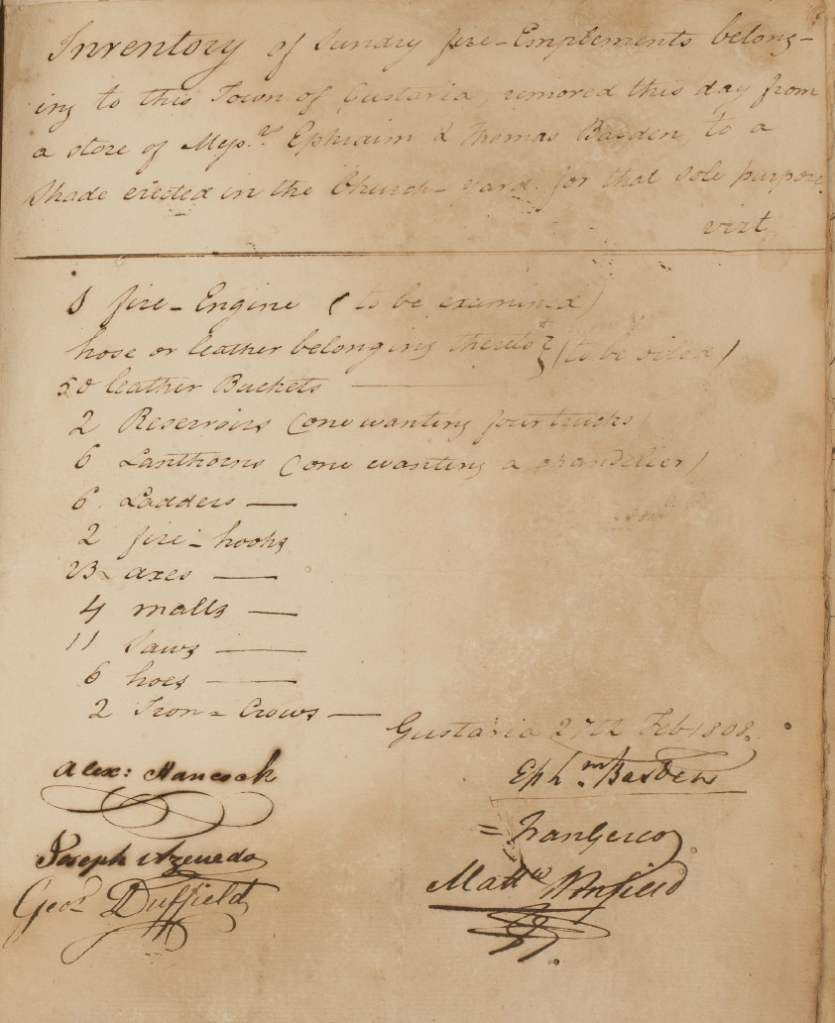 Inventory of Sundry fire-Emplements belong-
ing to this Town of Gustavia, removed this day from
a store of Mess.rs Ephraim & Thomas Basden, to a
Shade erected in the Church-Yard for that sole purpose
vizt
1 fire-Engine (to be examined)
hose or leather belonging thereto (to be oiled)
50 leather Buckets —
2 Reservoirs (one wanting four trucks)
6 Lanthorns (one wanting a chandelier)
6 Ladders —
2 fire-hooks
23 axes —
4 malls —
11 Saws —
6 hoes —
2 Iron-Crows —
Gustavia 27th Feb 1808.
Alex: Hancock
Eph.m Basden
Joseph Azevedo
Geo. Duffield
Matt.w